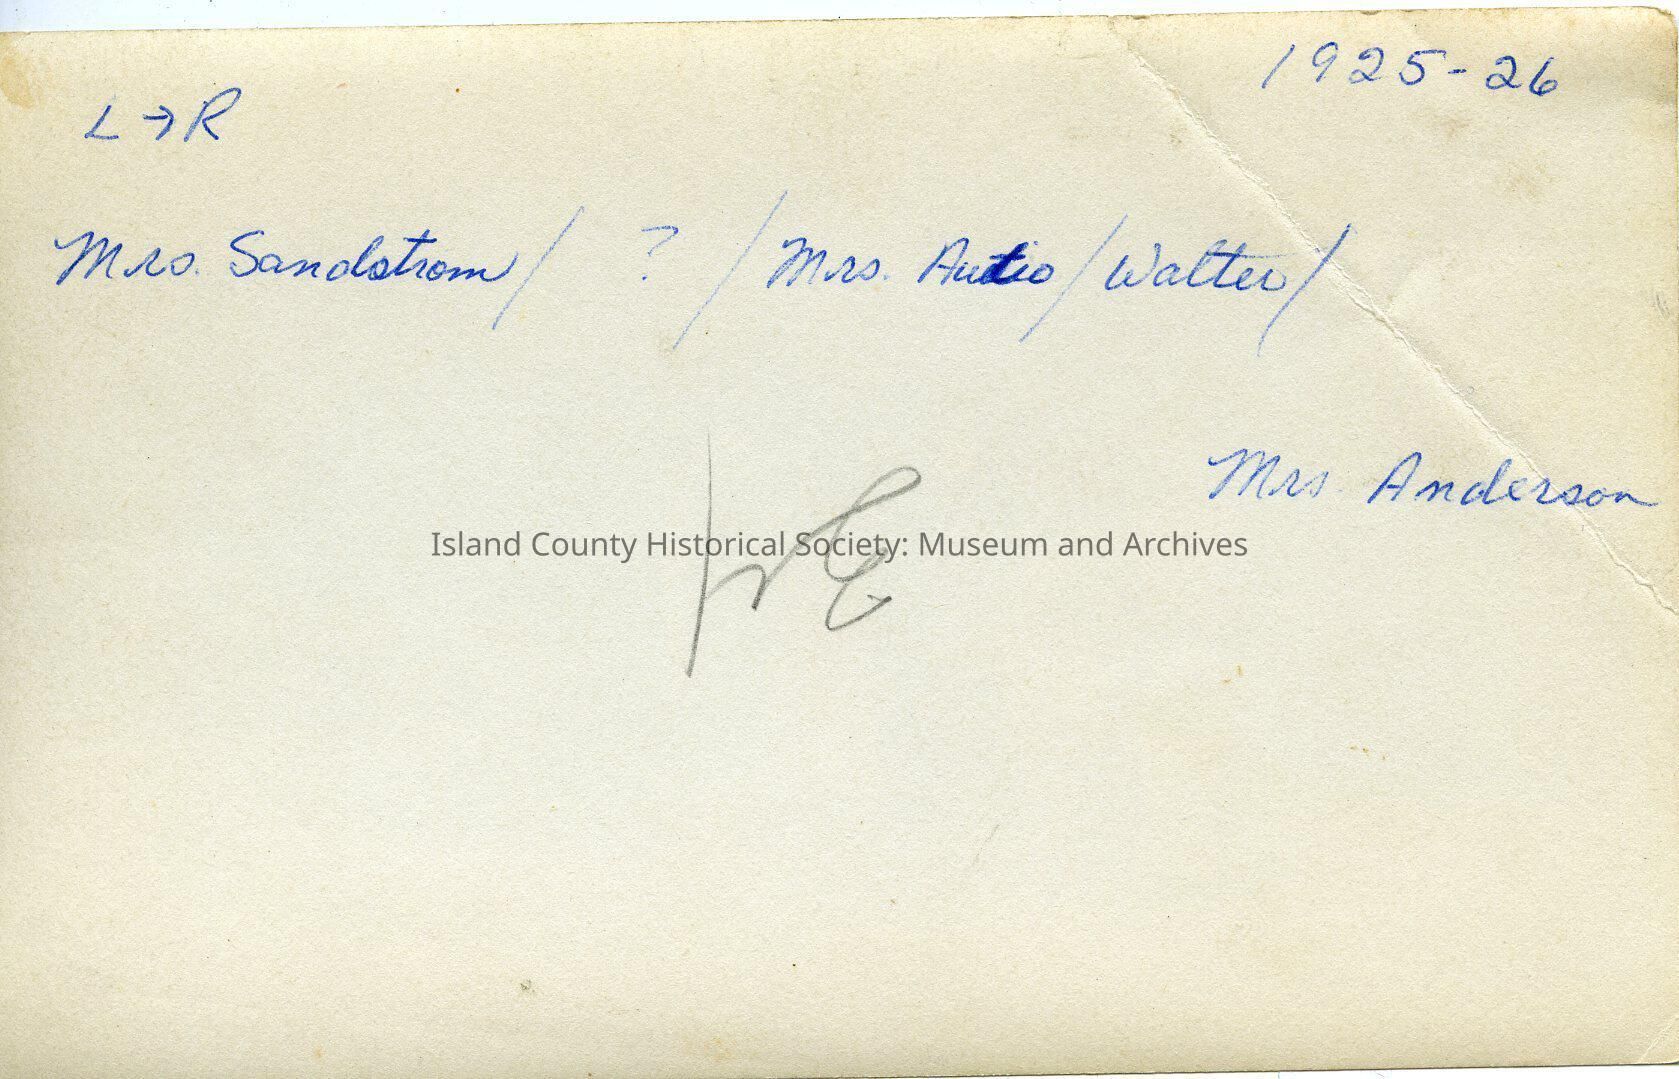 1925-26
L → R
Mrs. Sandstrom / ? / Mrs. Autio / Walter /
Mrs. Anderson
Island County Historical Society: Museum and Archives